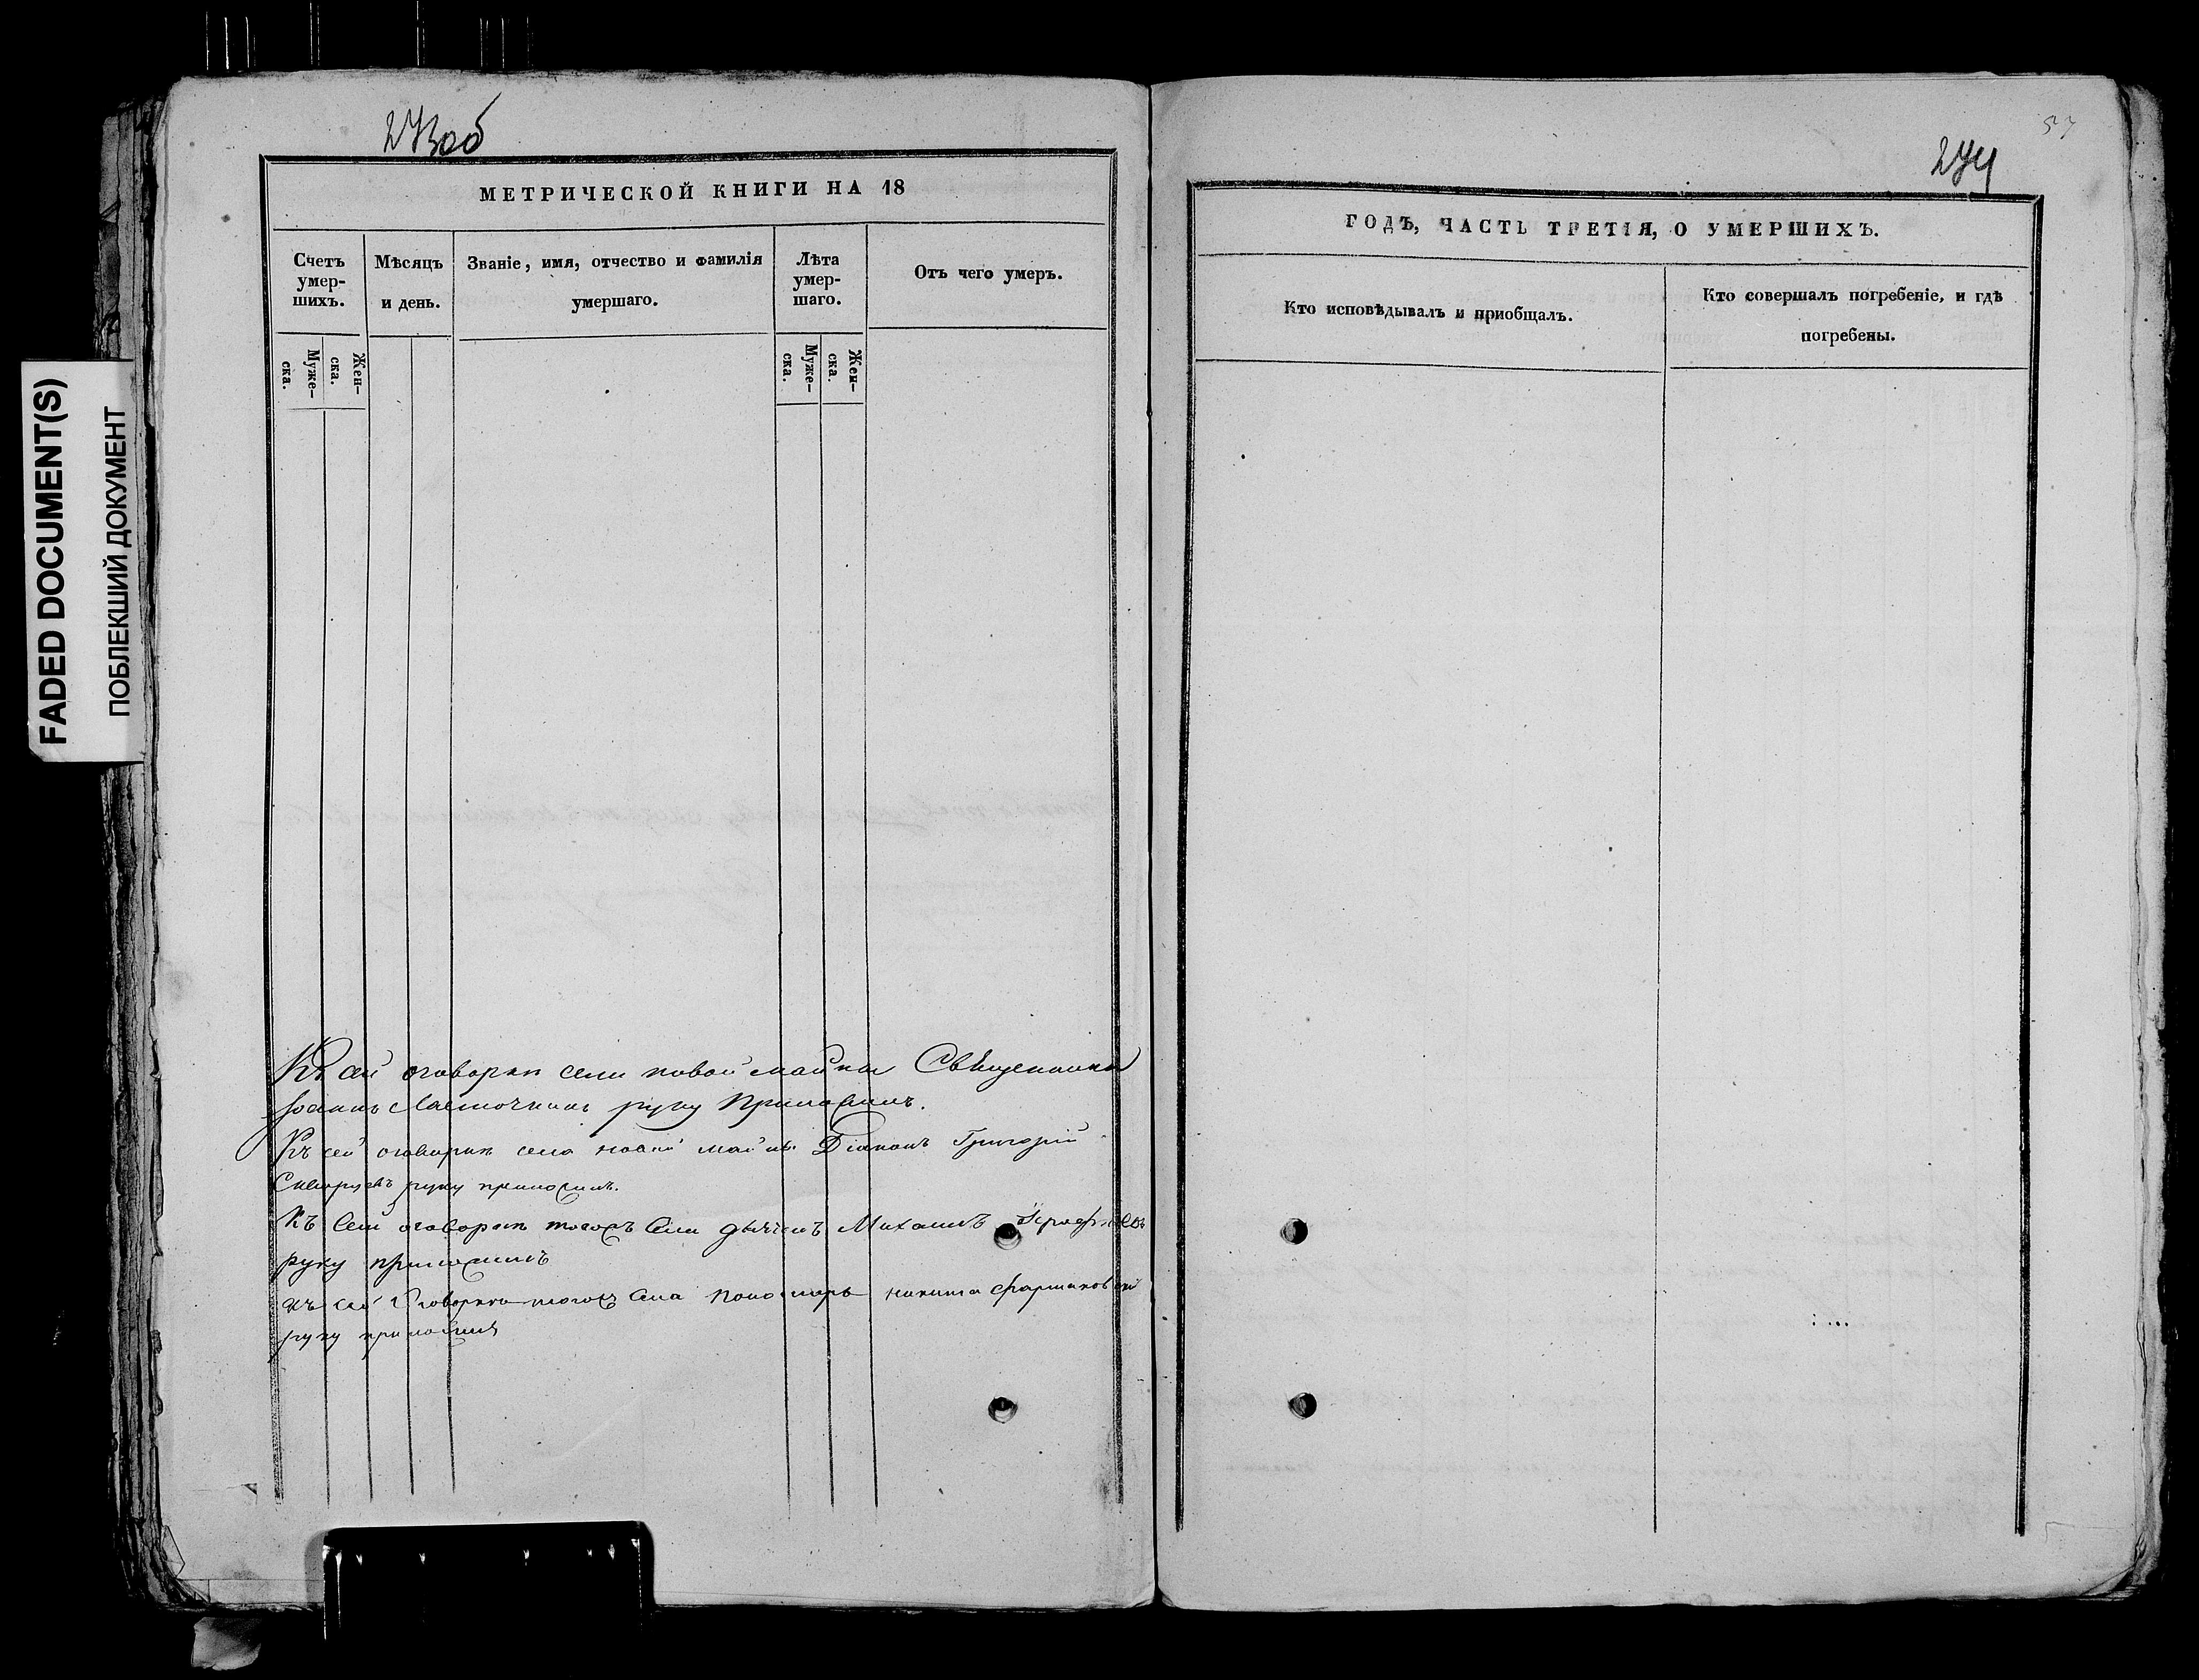 FADED DOCUMENT(S)
ПОБЛЕКШИЙ ДОКУМЕНТ
273об
МЕТРИЧЕСКОЙ КНИГИ НА 18
Счетъ умер-шихъ.
Мѣсяцъ и день.
Званіе, имя, отчество и фамилія умершаго.
Лѣта умер-шаго.
Отъ чего умеръ.
Муже-ска.
Жен-ска.
Муже-ска.
Жен-ска.
Къ сей оговорки села новой майны Священникъ
Іоаннъ Ласточкинъ руку Приложилъ.
Къ сей оговорки села новой майны Діаконъ Григорій
руку приложилъ.
Къ Сей оговорки тогожъ Села дьячекъ Михаилъ
руку приложилъ
къ сей оговорки тогожъ Села Пономарь никита
руку приложилъ
57
274
ГОДЪ, ЧАСТЬ ТРЕТІЯ, О УМЕРШИХЪ.
Кто исповѣдывалъ и приобщалъ.
Кто совершалъ погребеніе, и гдѣ погребены.